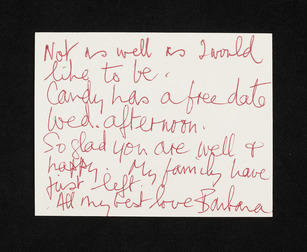 Not as well as I would
like to be.
Candy has a free date
Wed. afternoon.
So glad you are well &
happy. My family have
just left.
All my best love Barbara